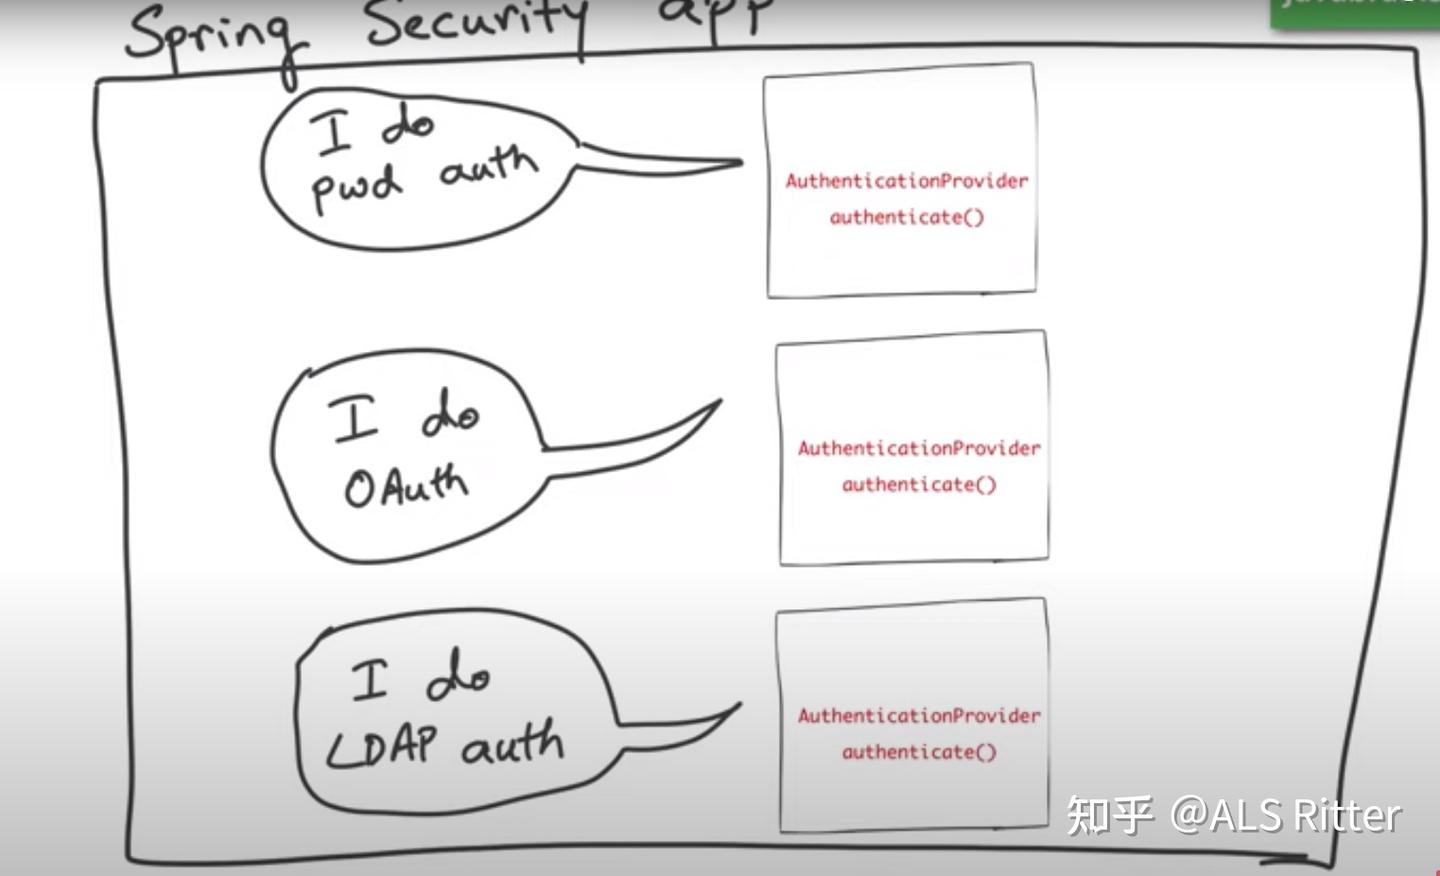 Spring Security app
I do
pwd auth
AuthenticationProvider
authenticate()
I do
OAuth
AuthenticationProvider
authenticate()
I do
LDAP auth
AuthenticationProvider
authenticate()
知乎 @ALS Ritter